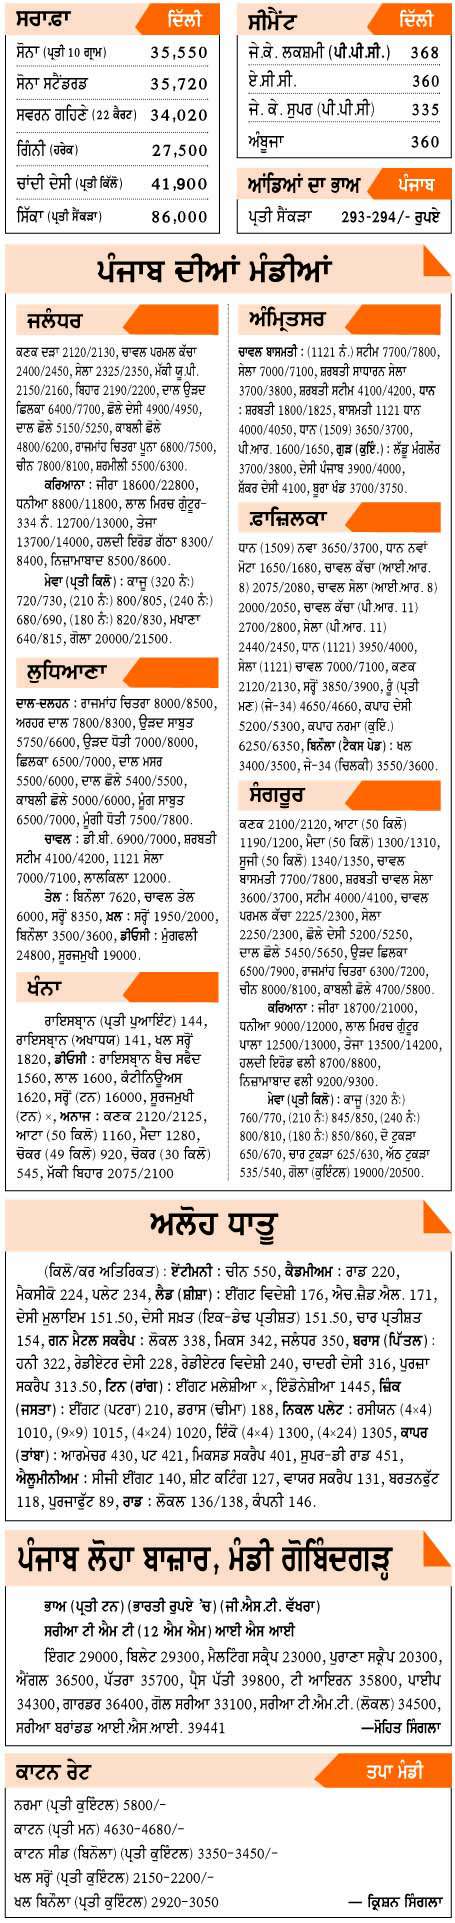 ਸਰਾਫ਼ਾ ਦਿੱਲੀ
ਸੋਨਾ (ਪ੍ਰਤੀ 10 ਗ੍ਰਾਮ) 35,550
ਸੋਨਾ ਸਟੈਂਡਰਡ 35,720
ਸਵਰਨ ਗਹਿਣੇ (22 ਕੈਰਟ) 34,020
ਗਿੰਨੀ (ਹਰੇਕ) 27,500
ਚਾਂਦੀ ਦੇਸੀ (ਪ੍ਰਤੀ ਕਿੱਲੋ) 41,900
ਸਿੱਕਾ (ਪ੍ਰਤੀ ਸੈਂਕੜਾ) 86,000
ਸੀਮੈਂਟ ਦਿੱਲੀ
ਜੇ.ਕੇ. ਲਕਸ਼ਮੀ (ਪੀ.ਪੀ.ਸੀ.) 368
ਏ.ਸੀ.ਸੀ. 360
ਜੇ. ਕੇ. ਸੁਪਰ (ਪੀ.ਪੀ.ਸੀ) 335
ਅੰਬੂਜਾ 360
ਆਂਡਿਆਂ ਦਾ ਭਾਅ ਪੰਜਾਬ
ਪ੍ਰਤੀ ਸੈਂਕੜਾ 293-294/- ਰੁਪਏ
ਪੰਜਾਬ ਦੀਆਂ ਮੰਡੀਆਂ
ਜਲੰਧਰ
ਕਣਕ ਦੜਾ 2120/2130, ਚਾਵਲ ਪਰਮਲ ਕੱਚਾ
2400/2450, ਸੇਲਾ 2325/2350, ਮੱਕੀ ਯੂ.ਪੀ.
2150/2160, ਬਿਹਾਰ 2190/2200, ਦਾਲ ਉੜਦ
ਛਿਲਕਾ 6400/7700, ਛੋਲੇ ਦੇਸੀ 4900/4950,
ਦਾਲ ਛੋਲੇ 5150/5250, ਕਾਬਲੀ ਛੋਲੇ
4800/6200, ਰਾਜਮਾਂਹ ਚਿਤਰਾ ਪੂਨਾ 6800/7500,
ਚੀਨ 7800/8100, ਸ਼ਰਮੀਲੀ 5500/6300.
ਕਰਿਆਨਾ : ਜੀਰਾ 18600/22800,
ਧਨੀਆ 8800/11800, ਲਾਲ ਮਿਰਚ ਗੁੰਟੂਰ-
334 ਨੰ. 12700/13000, ਤੇਜਾ
13700/14000, ਹਲਦੀ ਇਰੋਡ ਗੱਠਾ 8300/
8400, ਨਿਜ਼ਾਮਾਬਾਦ 8500/8600.
ਮੇਵਾ (ਪ੍ਰਤੀ ਕਿਲੋ) : ਕਾਜੂ (320 ਨੰ:)
720/730, (210 ਨੰ:) 800/805, (240 ਨੰ:)
680/690, (180 ਨੰ:) 820/830, ਮਖਾਣਾ
640/815, ਗੋਲਾ 20000/21500.
ਲੁਧਿਆਣਾ
ਦਾਲ-ਦਲਹਨ : ਰਾਜਮਾਂਹ ਚਿਤਰਾ 8000/8500,
ਅਰਹਰ ਦਾਲ 7800/8300, ਉੜਦ ਸਾਬੁਤ
5750/6600, ਉੜਦ ਧੋਤੀ 7000/8000,
ਛਿਲਕਾ 6500/7000, ਦਾਲ ਮਸਰ
5500/6000, ਦਾਲ ਛੋਲੇ 5400/5500,
ਕਾਬਲੀ ਛੋਲੇ 5000/6000, ਮੂੰਗ ਸਾਬੁਤ
6500/7000, ਮੂੰਗੀ ਧੋਤੀ 7500/7800.
ਚਾਵਲ : ਡੀ.ਬੀ. 6900/7000, ਸ਼ਰਬਤੀ
ਸਟੀਮ 4100/4200, 1121 ਸੇਲਾ
7000/7100, ਲਾਲਕਿਲਾ 12000.
ਤੇਲ : ਬਿਨੌਲਾ 7620, ਚਾਵਲ ਤੇਲ
6000, ਸਰ੍ਹੋਂ 8350, ਖ਼ਲ : ਸਰ੍ਹੋਂ 1950/2000,
ਬਿਨੌਲਾ 3500/3600, ਡੀਓਸੀ : ਮੂੰਗਫਲੀ
24800, ਸੂਰਜਮੁਖੀ 19000.
ਖੰਨਾ
ਰਾਇਸਬ੍ਰਾਨ (ਪ੍ਰਤੀ ਪੁਆਇੰਟ) 144,
ਰਾਇਸਬ੍ਰਾਨ (ਅਖਾਧਯ) 141, ਖਲ ਸਰ੍ਹੋਂ
1820, ਡੀਓਸੀ : ਰਾਇਸਬ੍ਰਾਨ ਬੈਚ ਸਫੈਦ
1560, ਲਾਲ 1600, ਕੰਟੀਨਿਊਅਸ
1620, ਸਰ੍ਹੋਂ (ਟਨ) 16000, ਸੂਰਜਮੁਖੀ
(ਟਨ) ×, ਅਨਾਜ : ਕਣਕ 2120/2125,
ਆਟਾ (50 ਕਿਲੋ) 1160, ਮੈਦਾ 1280,
ਚੋਕਰ (49 ਕਿਲੋ) 920, ਚੋਕਰ (30 ਕਿਲੋ)
545, ਮੱਕੀ ਬਿਹਾਰ 2075/2100
ਅੰਮ੍ਰਿਤਸਰ
ਚਾਵਲ ਬਾਸਮਤੀ : (1121 ਨੰ.) ਸਟੀਮ 7700/7800,
ਸੇਲਾ 7000/7100, ਸ਼ਰਬਤੀ ਸਾਧਾਰਨ ਸੇਲਾ
3700/3800, ਸ਼ਰਬਤੀ ਸਟੀਮ 4100/4200, ਧਾਨ
: ਸ਼ਰਬਤੀ 1800/1825, ਬਾਸਮਤੀ 1121 ਧਾਨ
4000/4050, ਧਾਨ (1509) 3650/3700,
ਪੀ.ਆਰ. 1600/1650, ਗੁੜ (ਕੁਇੰ.) : ਲੱਡੂ ਮੰਗਲੌਰ
3700/3800, ਦੇਸੀ ਪੰਜਾਬ 3900/4000,
ਸ਼ੱਕਰ ਦੇਸੀ 4100, ਬੂਰਾ ਖੰਡ 3700/3750.
ਫ਼ਾਜ਼ਿਲਕਾ
ਧਾਨ (1509) ਨਵਾ 3650/3700, ਧਾਨ ਨਵਾਂ
ਮੋਟਾ 1650/1680, ਚਾਵਲ ਕੱਚਾ (ਆਈ.ਆਰ.
8) 2075/2080, ਚਾਵਲ ਸੇਲਾ (ਆਈ.ਆਰ. 8)
2000/2050, ਚਾਵਲ ਕੱਚਾ (ਪੀ.ਆਰ. 11)
2700/2800, ਸੇਲਾ (ਪੀ.ਆਰ. 11)
2440/2450, ਧਾਨ (1121) 3950/4000,
ਸੇਲਾ (1121) ਚਾਵਲ 7000/7100, ਕਣਕ
2120/2130, ਸਰ੍ਹੋਂ 3850/3900, ਰੂੰ (ਪ੍ਰਤੀ
ਮਣ) (ਜੇ-34) 4650/4660, ਕਪਾਹ ਦੇਸੀ
5200/5300, ਕਪਾਹ ਨਰਮਾ (ਕੁਇੰ.)
6250/6350, ਬਿਨੌਲਾ (ਟੈਕਸ ਪੇਡ) : ਖਲ
3400/3500, ਜੇ-34 (ਚਿਲਕੀ) 3550/3600.
ਸੰਗਰੂਰ
ਕਣਕ 2100/2120, ਆਟਾ (50 ਕਿਲੋ)
1190/1200, ਮੈਦਾ (50 ਕਿਲੋ) 1300/1310,
ਸੂਜੀ (50 ਕਿਲੋ) 1340/1350, ਚਾਵਲ
ਬਾਸਮਤੀ 7700/7800, ਸ਼ਰਬਤੀ ਚਾਵਲ ਸੇਲਾ
3600/3700, ਸਟੀਮ 4000/4100, ਚਾਵਲ
ਪਰਮਲ ਕੱਚਾ 2225/2300, ਸੇਲਾ
2250/2300, ਛੋਲੇ ਦੇਸੀ 5200/5250,
ਦਾਲ ਛੋਲੇ 5450/5650, ਉੜਦ ਛਿਲਕਾ
6500/7900, ਰਾਜਮਾਂਹ ਚਿਤਰਾ 6300/7200,
ਚੀਨ 8000/8100, ਕਾਬਲੀ ਛੋਲੇ 4700/5800.
ਕਰਿਆਨਾ : ਜੀਰਾ 18700/21000,
ਧਨੀਆ 9000/12000, ਲਾਲ ਮਿਰਚ ਗੁੰਟੂਰ
ਪਾਲਾ 12500/13000, ਤੇਜਾ 13500/14200,
ਹਲਦੀ ਇਰੋਡ ਫਲੀ 8700/8800,
ਨਿਜ਼ਾਮਾਬਾਦ ਫਲੀ 9200/9300.
ਮੇਵਾ (ਪ੍ਰਤੀ ਕਿਲੋ) : ਕਾਜੂ (320 ਨੰ:)
760/770, (210 ਨੰ:) 845/850, (240 ਨੰ:)
800/810, (180 ਨੰ:) 850/860, ਦੋ ਟੁਕੜਾ
650/670, ਚਾਰ ਟੁਕੜਾ 625/630, ਅੱਠ ਟੁਕੜਾ
535/540, ਗੋਲਾ (ਕੁਇੰਟਲ) 19000/20500.
ਅਲੋਹ ਧਾਤੂ
(ਕਿਲੋ/ਕਰ ਅਤਿਰਿਕਤ) : ਏਂਟੀਮਨੀ : ਚੀਨ 550, ਕੈਡਮੀਅਮ : ਰਾਡ 220,
ਮੈਕਸੀਕੋ 224, ਪਲੇਟ 234, ਲੈਡ (ਸ਼ੀਸ਼ਾ) : ਈਂਗਟ ਵਿਦੇਸ਼ੀ 176, ਐਚ.ਜ਼ੈਡ.ਐਲ. 171,
ਦੇਸੀ ਮੁਲਾਇਮ 151.50, ਦੇਸੀ ਸਖ਼ਤ (ਇਕ-ਡੇਢ ਪ੍ਰਤੀਸ਼ਤ) 151.50, ਚਾਰ ਪ੍ਰਤੀਸ਼ਤ
154, ਗਨ ਮੈਟਲ ਸਕਰੈਪ : ਲੋਕਲ 338, ਮਿਕਸ 342, ਜਲੰਧਰ 350, ਬਰਾਸ (ਪਿੱਤਲ) :
ਹਨੀ 322, ਰੇਡੀਏਟਰ ਦੇਸੀ 228, ਰੇਡੀਏਟਰ ਵਿਦੇਸ਼ੀ 240, ਚਾਦਰੀ ਦੇਸੀ 316, ਪੁਰਜ਼ਾ
ਸਕਰੈਪ 313.50, ਟਿਨ (ਰਾਂਗ) : ਈਂਗਟ ਮਲੇਸ਼ੀਆ ×, ਇੰਡੋਨੇਸ਼ੀਆ 1445, ਜ਼ਿੰਕ
(ਜਸਤਾ) : ਈਂਗਟ (ਪਟਰਾ) 210, ਡਰਾਸ (ਢੀਮਾ) 188, ਨਿਕਲ ਪਲੇਟ : ਰਸੀਯਨ (4×4)
1010, (9×9) 1015, (4×24) 1020, ਇੰਕੋ (4×4) 1300, (4×24) 1305, ਕਾਪਰ
(ਤਾਂਬਾ) : ਆਰਮੇਚਰ 430, ਪਟ 421, ਮਿਕਸਡ ਸਕਰੈਪ 401, ਸੁਪਰ-ਡੀ ਰਾਡ 451,
ਐਲੂਮੀਨੀਅਮ : ਸੀਜੀ ਈਂਗਟ 140, ਸ਼ੀਟ ਕਟਿੰਗ 127, ਵਾਯਰ ਸਕਰੈਪ 131, ਬਰਤਨਫੁੱਟ
118, ਪੁਰਜਾਫੁੱਟ 89, ਰਾਡ : ਲੋਕਲ 136/138, ਕੰਪਨੀ 146.
ਪੰਜਾਬ ਲੋਹਾ ਬਾਜ਼ਾਰ, ਮੰਡੀ ਗੋਬਿੰਦਗੜ੍ਹ
ਭਾਅ (ਪ੍ਰਤੀ ਟਨ) (ਭਾਰਤੀ ਰੁਪਏ 'ਚ) (ਜੀ.ਐਸ.ਟੀ. ਵੱਖਰਾ)
ਸਰੀਆ ਟੀ ਐਮ ਟੀ (12 ਐਮ ਐਮ) ਆਈ ਐਸ ਆਈ
ਇੰਗਟ 29000, ਬਿਲੇਟ 29300, ਮੈਲਟਿੰਗ ਸਕ੍ਰੈਪ 23000, ਪੁਰਾਣਾ ਸਕ੍ਰੈਪ 20300,
ਐਂਗਲ 36500, ਪੱਤਰਾ 35700, ਪ੍ਰੈਸ ਪੱਤੀ 39800, ਟੀ ਆਇਰਨ 35800, ਪਾਈਪ
34300, ਗਾਰਡਰ 36400, ਗੋਲ ਸਰੀਆ 33100, ਸਰੀਆ ਟੀ.ਐਮ.ਟੀ. (ਲੋਕਲ) 34500,
ਸਰੀਆ ਬਰਾਂਡਡ ਆਈ.ਐਸ.ਆਈ. 39441 —ਮੋਹਿਤ ਸਿੰਗਲਾ
ਕਾਟਨ ਰੇਟ ਤਪਾ ਮੰਡੀ
ਨਰਮਾ (ਪ੍ਰਤੀ ਕੁਇੰਟਲ) 5800/-
ਕਾਟਨ (ਪ੍ਰਤੀ ਮਨ) 4630-4680/-
ਕਾਟਨ ਸੀਡ (ਬਿਨੋਲਾ) (ਪ੍ਰਤੀ ਕੁਇੰਟਲ) 3350-3450/-
ਖਲ ਸਰ੍ਹੋਂ (ਪ੍ਰਤੀ ਕੁਇੰਟਲ) 2150-2200/-
ਖਲ ਬਿਨੌਲਾ (ਪ੍ਰਤੀ ਕੁਇੰਟਲ) 2920-3050 — ਕ੍ਰਿਸ਼ਨ ਸਿੰਗਲਾ